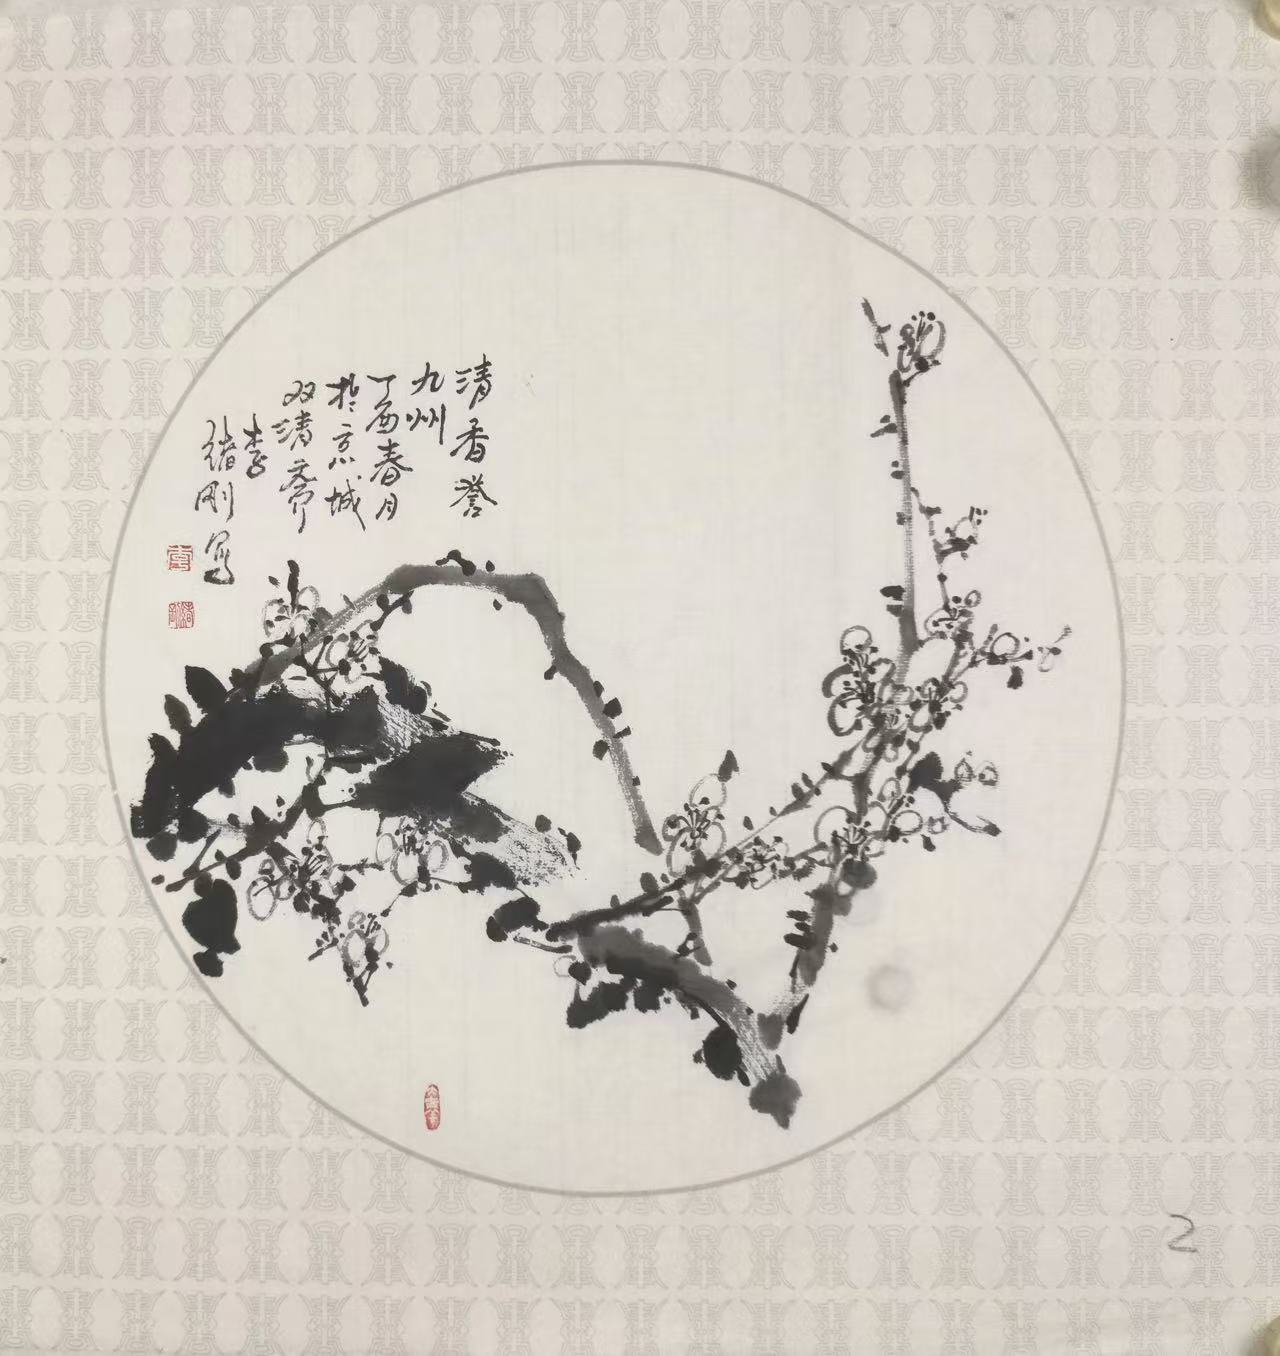 清香誉
九州
丁酉春月
於京城
双清斋
李
绪刚写
2